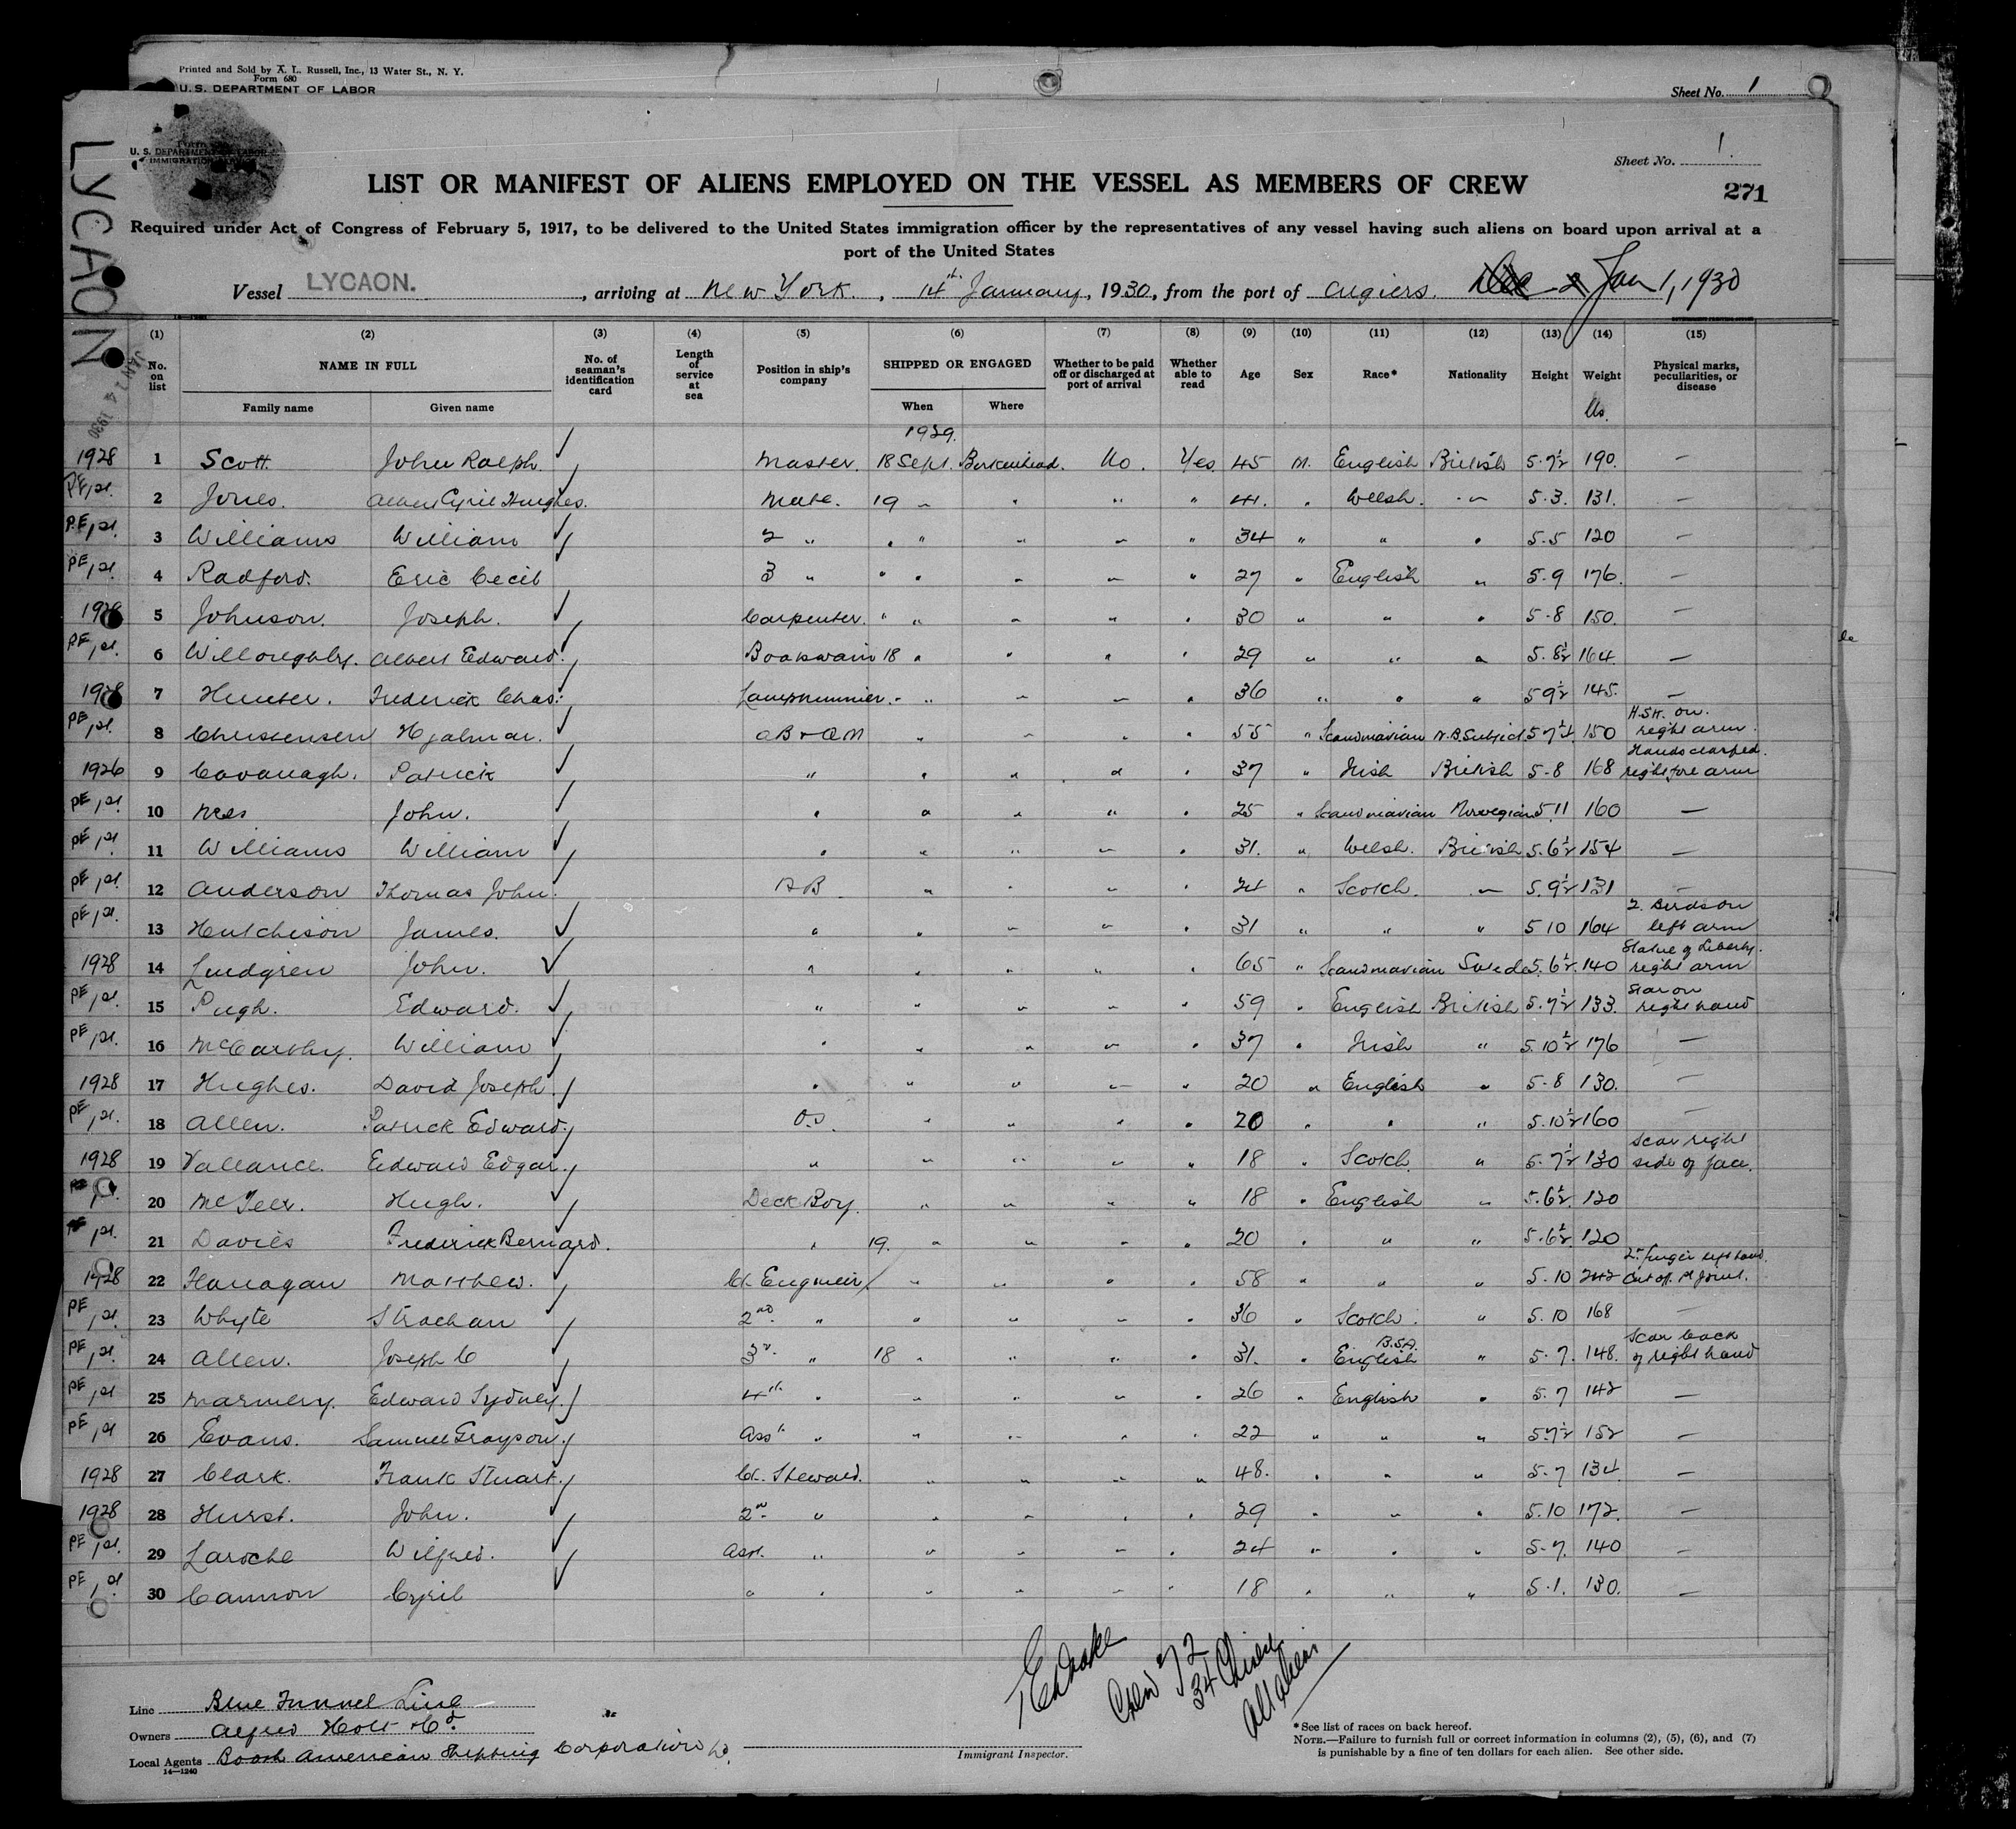 Printed and Sold by A. L. Russell, Inc., 13 Water St., N. Y.
Form 680
U. S. DEPARTMENT OF LABOR
Sheet No. 1
U. S. DEPARTMENT OF LABOR
IMMIGRATION
Sheet No. 1.
LYCAON
JAN 14 1930
LIST OR MANIFEST OF ALIENS EMPLOYED ON THE VESSEL AS MEMBERS OF CREW
271
Required under Act of Congress of February 5, 1917, to be delivered to the United States immigration officer by the representatives of any vessel having such aliens on board upon arrival at a
port of the United States
Vessel LYCAON. , arriving at New York. , 14th January, 1930, from the port of Jan 1, 1930
(1) (2) (3) (4) (5) (6) (7) (8) (9) (10) (11) (12) (13) (14) (15)
No. on list NAME IN FULL Family name Given name No. of seaman's identification card Length of service at sea Position in ship's company SHIPPED OR ENGAGED When Where Whether to be paid off or discharged at port of arrival Whether able to read Age Sex Race* Nationality Height Weight lbs. Physical marks, peculiarities, or disease
1929.
1928 1 Scott John Ralph Master. 18 Sept. Birkenhead. No. Yes 45 M. English British 5.7½ 190. —
PE, pl. 2 Jones. Albert Cyril Hughes. Mate. 19 " " " " 41. " Welsh. " 5.3. 131. —
PE, pl. 3 Williams William 2 " " " " " " 34 " " " 5.5 120 —
PE, pl. 4 Radford. Eric Cecil 3 " " " " " " 27 " English " 5.9 176. —
1928 5 Johnson. Joseph. Carpenter. " " " " " 30 " " " 5.8 150. —
PE, pl. 6 Willoughby. Albert Edward. Boatswain 18 " " " " 29 " " " 5.8½ 164. —
1928 7 Hunter. Frederick Chas: Lamptrimmer. " " " " " 36 " " " 5 9½ 145. —
PE, pl. 8 Christensen Hjalmar. AB & QM " " " " 55 " Scandinavian N.B. Subject 5.7¼ 150 H.S.H. on. right arm.
1926 9 Cavanagh. Patrick " " " " " 37 " Irish British 5.8 168 Hands clasped. right fore arm
PE, pl. 10 Ness John. " " " " " 25 " Scandinavian Norwegian 5.11 160 —
PE, pl. 11 Williams William " " " " " 31. " Welsh. British 5.6½ 154 —
PE, pl. 12 Anderson Thomas John. AB " " " " 24 " Scotch. " 5.9½ 131 —
PE, pl. 13 Hutchison James. " " " " " 31 " " " 5 10 164 2. Birds on left arm
1928 14 Lindgren John. " " " " " 65 " Scandinavian Swede. 5.6½. 140 Statue of Liberty. right arm
PE, pl. 15 Pugh. Edward. " " " " " 59 " English British 5.7½ 133. Star on right hand
PE, pl. 16 McCarthy. William " " " " " 37 " Irish " 5.10½ 176 —
1928 17 Hughes. David Joseph. " " " " " 20 " English " 5.8 130. —
PE, pl. 18 Allen. Patrick Edward. O.S. " " " " 20 " " " 5.10½ 160 —
1928 19 Vallance. Edward Edgar. " " " " " 18 " Scotch. " 5.7½ 130 Scar right side of face.
20 McTeer. Hugh. Deck Boy. " " " " 18 " English " 5.6½. 120
PE, pl. 21 Davies Frederick Bernard. " 19. " " " " 20 " " " 5.6½. 120
1928 22 Flanagan Matthew. Ch. Engineer " " " " 58 " " " 5.10 242 2nd finger left hand. Cut off. 1st Joint.
PE, pl. 23 Whyte Strachan 2nd. " " " " " 36 " Scotch. " 5.10 168 —
PE, pl. 24 Allen. Joseph C 3rd. " 18 " " " " 31. " English " 5.7. 148. Scar back of right hand
PE, pl 25 Marmery. Edward Sydney. 4th. " " " " " 26 " English " 5.7 142 —
PE, pl 26 Evans. Samuel Grayson. Asst. " " " " " 22 " " " 5.7½ 152 —
1928 27 Clark. Frank Stuart. Ch. Steward. " " " " 48. " " " 5.7 134 —
1928 28 Hurst. John. 2nd. " " " " " 29 " " " 5.10 172. —
PE, pl. 29 Laroche Wilfred. Asst. " " " " " 24 " " " 5.7. 140 —
PE, pl. 30 Cannon Cyril " " " " " " 18 " " " 5.1. 130. —
Crew 72
34 Chinese
All aliens
Line Blue Funnel Line
Owners Alfred Holt & Co.
Local Agents Booth American Shipping Corporation
14—1240
Immigrant Inspector.
*See list of races on back hereof.
NOTE.—Failure to furnish full or correct information in columns (2), (5), (6), and (7)
is punishable by a fine of ten dollars for each alien. See other side.